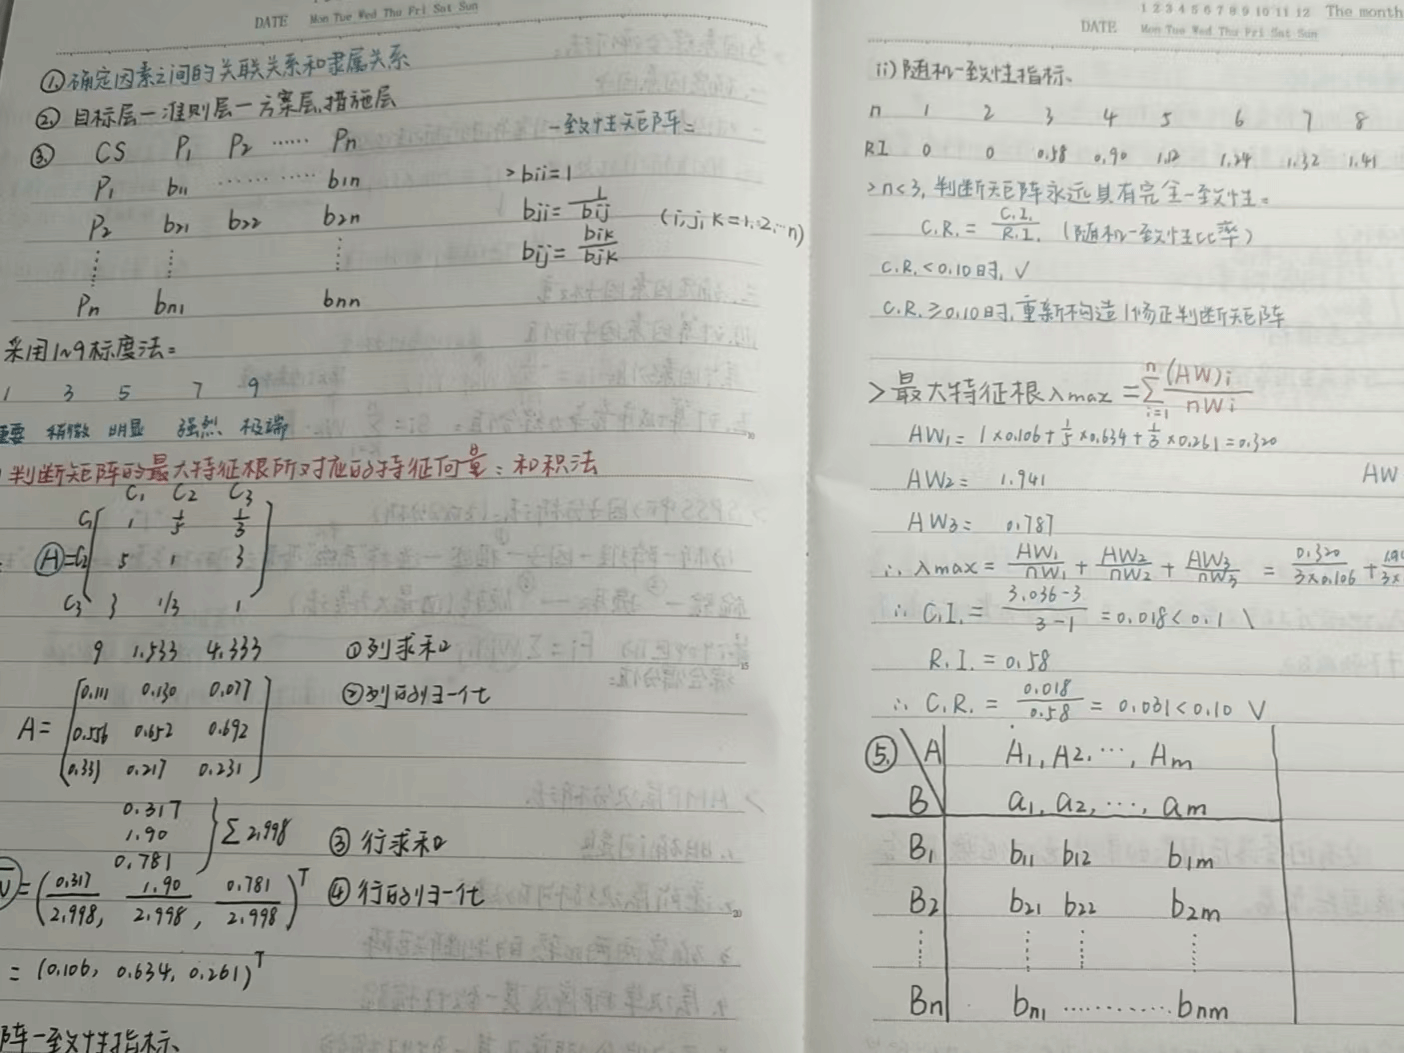 DATE Mon Tue Wed Thu Fri Sat Sun
① 确定因素之间的关联关系和隶属关系
② 目标层－准则层－方案层,措施层
一致性矩阵：
③ CS P₁ P₂ …… Pn
P₁ b₁₁ ………… b₁n
P₂ b₂₁ b₂₂ b₂n
⋮ ⋮ ⋮
Pn bn₁ bnn
>bii=1
bji=1/bij
bij=bik/bjk (i,j,k=1,2,…n)
采用1~9标度法：
1 3 5 7 9
重要 稍微 明显 强烈 极端
判断矩阵的最大特征根所对应的特征向量：和积法
C₁ C₂ C₃
C₁ 1 1/5 1/3
A= C₂ 5 1 3
C₃ 3 1/3 1
9 1.533 4.333 ①列求和
A= 0.111 0.130 0.077 ②列的归一化
0.556 0.652 0.692
0.333 0.217 0.231
0.317
1.90 } Σ 2.998 ③ 行求和
0.781
=(0.317/2.998, 1.90/2.998, 0.781/2.998)ᵀ ④ 行的归一化
= (0.106, 0.634, 0.261)ᵀ
阵一致性指标、
1 2 3 4 5 6 7 8 9 10 11 12 The month
DATE Mon Tue Wed Thu Fri Sat Sun
ii) 随机一致性指标、
n 1 2 3 4 5 6 7 8
RI 0 0 0.58 0.90 1.12 1.24 1.32 1.41
>n<3, 判断矩阵永远具有完全一致性。
C.R. = C.I./R.I. (随机一致性比率)
C.R.<0.10时, √
C.R.≥0.10时,重新构造/修正判断矩阵
>最大特征根λmax=Σⁿᵢ₌₁ (AW)i/nWi
AW₁= 1×0.106+1/5×0.634+1/3×0.261=0.320
AW
AW₂= 1.941
AW₃= 0.787
∴ λmax= AW₁/nW₁ + AW₂/nW₂ + AW₃/nW₃ = 0.320/3×0.106 +
∴ C.I. = 3.036-3/3-1 = 0.018<0.1 \
R.I. = 0.58
∴ C.R. = 0.018/0.58 = 0.031<0.10 √
⑤ A A₁, A₂, …, Am
B a₁, a₂, …, am
B₁ b₁₁ b₁₂ b₁m
B₂ b₂₁ b₂₂ b₂m
⋮ ⋮ ⋮ ⋮
Bn bn₁ ………… bnm